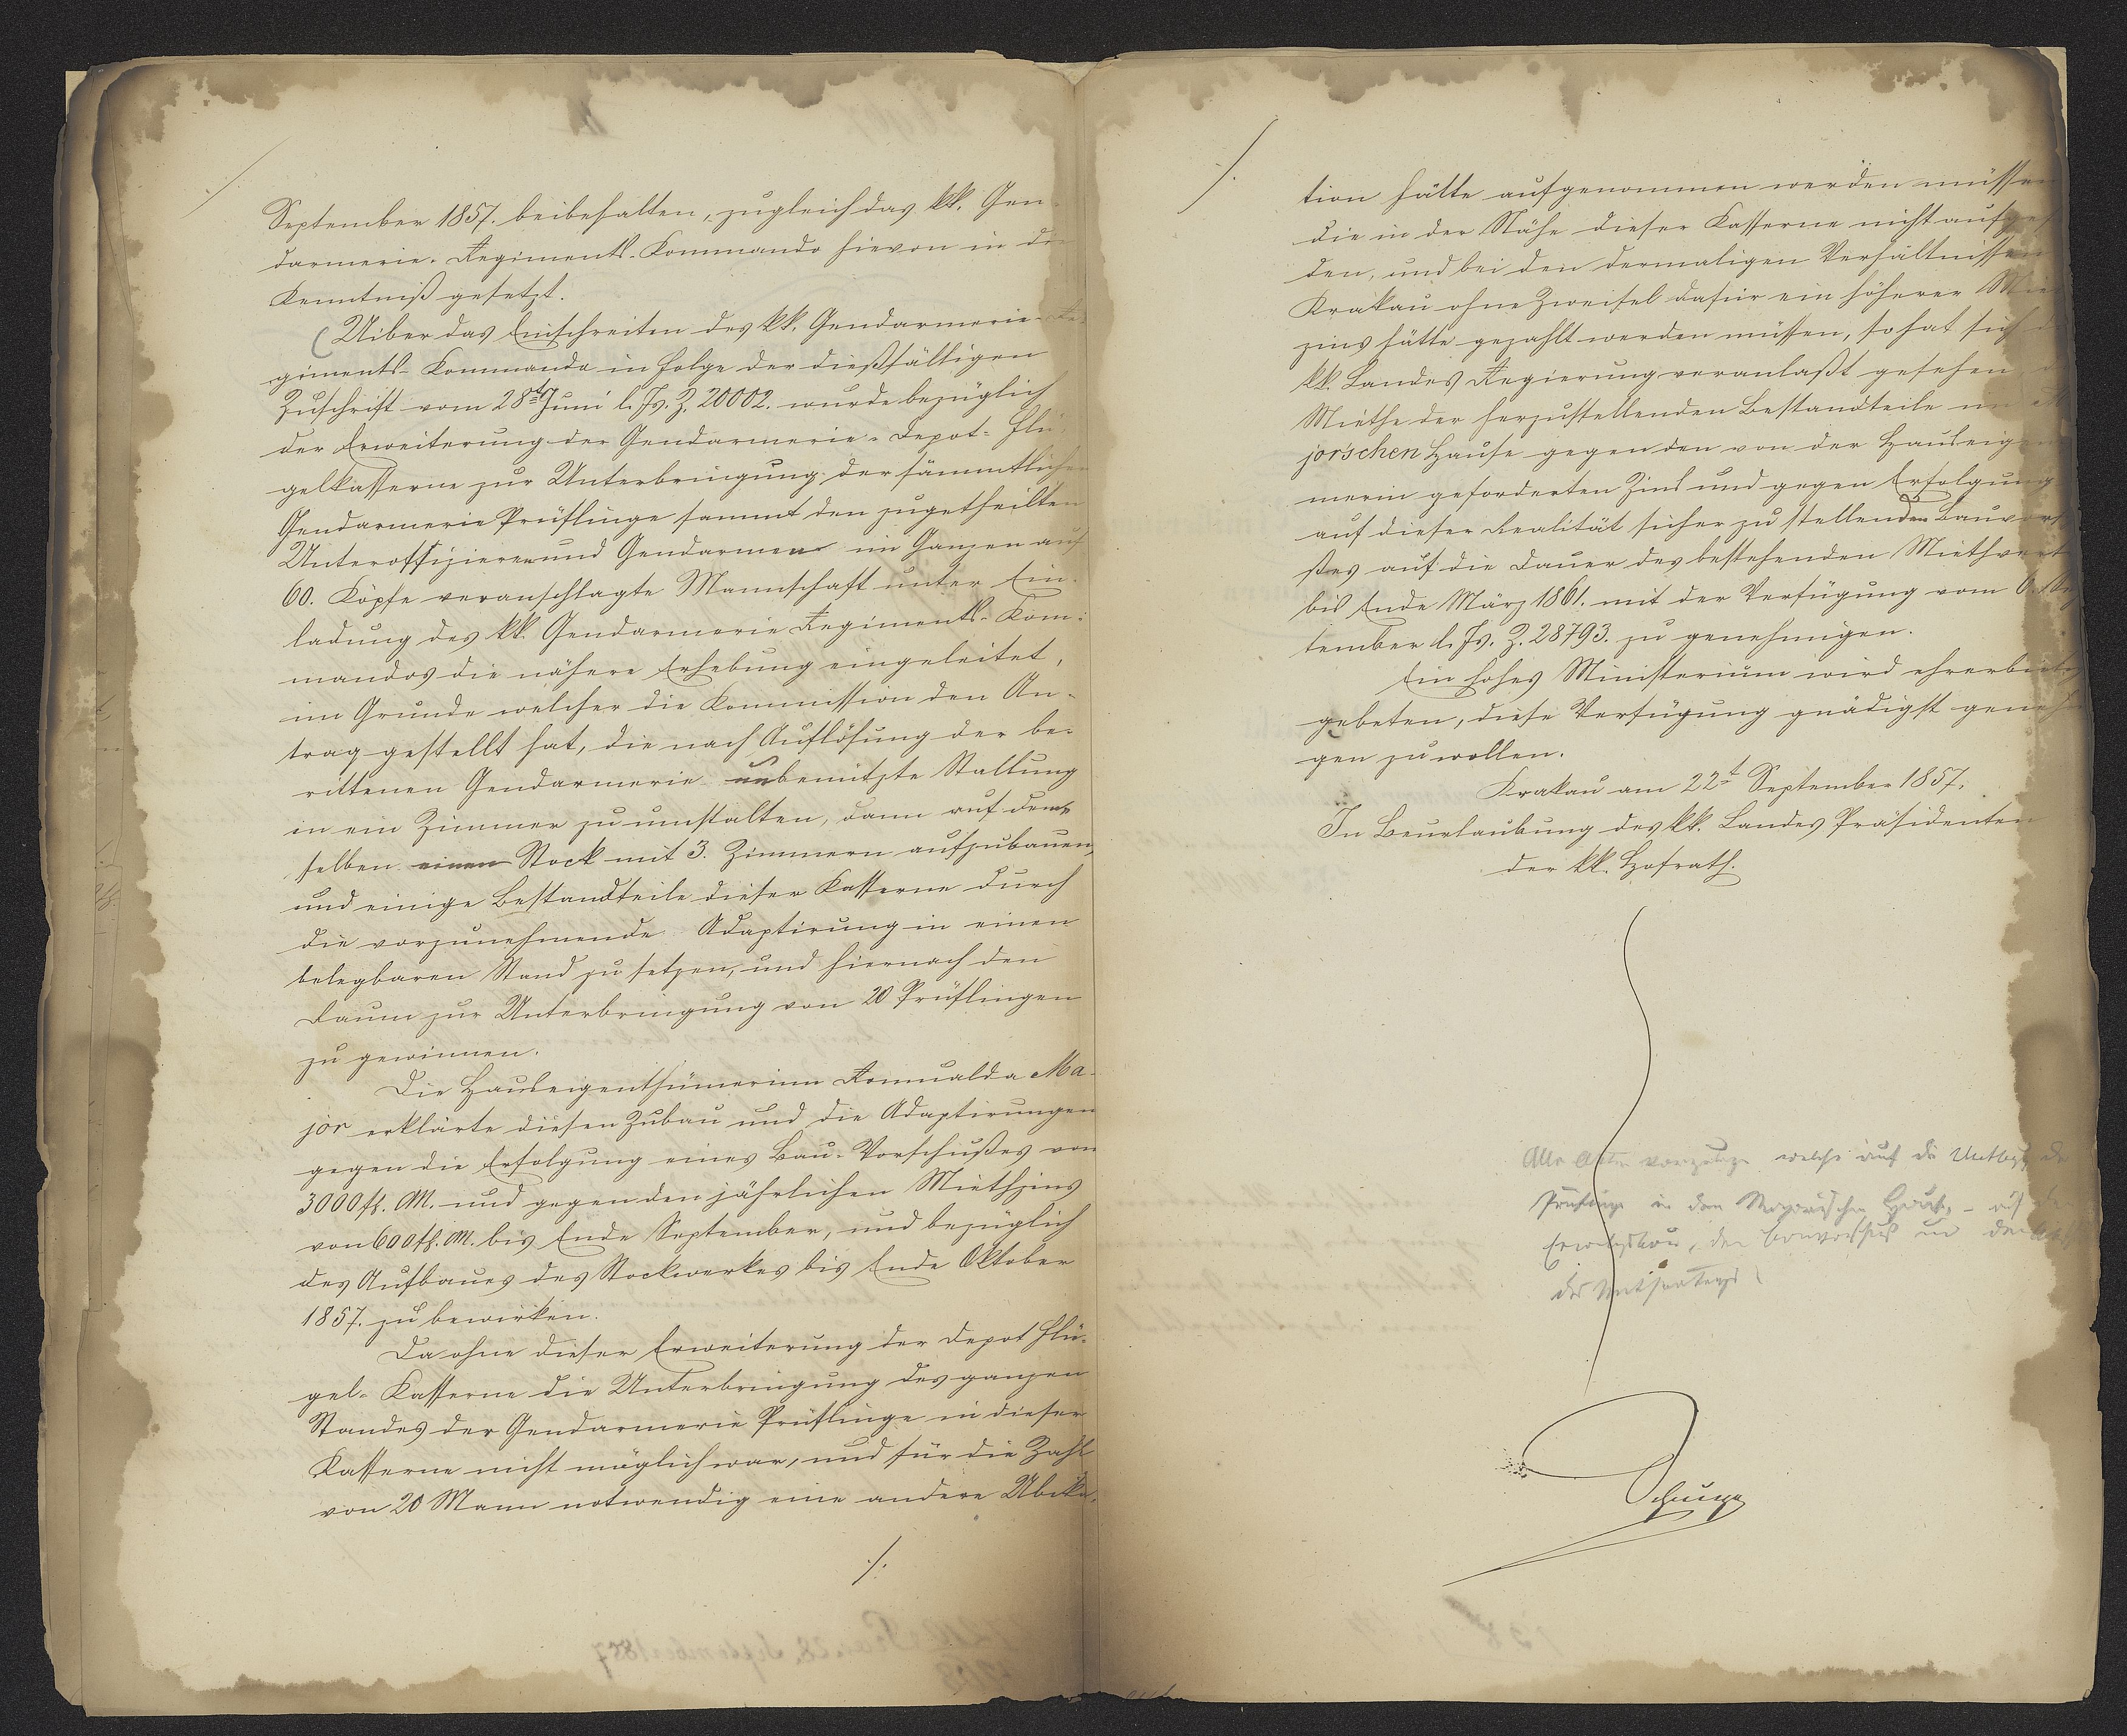 September 1857. beibehalten, zugleich das kk. Gen-
darmerie-Regiments-Kommando hievon in die
Kenntniß gesetzt.
Uiber das Einschreiten des kk. Gendarmerie-Re-
giments-Kommando in Folge der dießfälligen
Zuschrift vom 28t Juni l. Js. Z. 20002. wurde bezüglich
der Erweiterung der Gendarmerie-Depot-Flü-
gelkasserne zur Unterbringung der sämmtlichen
Gendarmerie Prüflinge sammt den zugetheilten
Unteroffizieren und Gendarmen im Ganzen auf
60. Köpfe veranschlagte Mannschaft unter Ein-
ladung des kk. Gendarmerie Regiments-Kom-
mandos die nähere Erhebung eingeleitet,
im Grunde welcher die Kommission den An-
trag gestellt hat, die nach Auflösung der be-
rittenen Gendarmerie unbenützte Stallung
in ein Zimmer zu umstalten, dann auf dem-
selben einen Stock mit 3. Zimmern aufzubauen,
und einige Bestandteile dieser Kasserne durch
die vorzunehmende Adaptirung in einen
belegbaren Stand zu setzen, und hiernach den
Raum zur Unterbringung von 20 Prüflingen
zu gewinnen.
Die Hauseigenthümerinn Romualda Ma-
jor erklärte diesen Zubau und die Adaptirungen
gegen die Erfolgung eines Bau-Vorschußes von
3000 fl. CM. und gegen den jährlichen Miethzins
von 600 fl. CM. bis Ende September, und bezüglich
des Aufbaues des Stockwerkes bis Ende Oktober
1857. zu bewirken.
Da ohne dieser Erweiterung der Depot Flü-
gel-Kasserne die Unterbringung des ganzen
Standes der Gendarmerie Prüflinge in dieser
Kasserne nicht möglich war, und für die Zahl
von 20 Mann notwendig eine andere Ubika-
./.
./.
tion hätte aufgenommen werden müssen
die in der Nähe dieser Kasserne nicht
den, und bei den dermaligen Verhältnissen
Krakau ohne Zweifel dafür ein höherer Mie
zins hätte gezahlt werden müssen, so hat sich
kk. Landes Regierung veranlaßt gesehen
Miethe der herzustellenden Bestandteile im Ma
jor'schen Hause gegen den von der Hauseigen
merin geforderten Zins und gegen Erfolgung
auf dieser Realität sicher zu stellenden Bauvors
ßes auf die Dauer des bestehenden Miethvert
bis Ende März 1861. mit der Verfügung vom 6. Sep
tember l. Js. Z. 28793. zu genehmigen.
Ein hohes Ministerium wird ehrerbiet
gebeten, diese Verfügung gnädigst geneh
gen zu wollen.
Krakau am 22t September 1857.
In Beurlaubung des kk. Landes Präsidenten
der kk. Hofrath.
Alle welche auf die
Prüflinge in dem Majorischen Hause, -
den Bauvorschuß
des